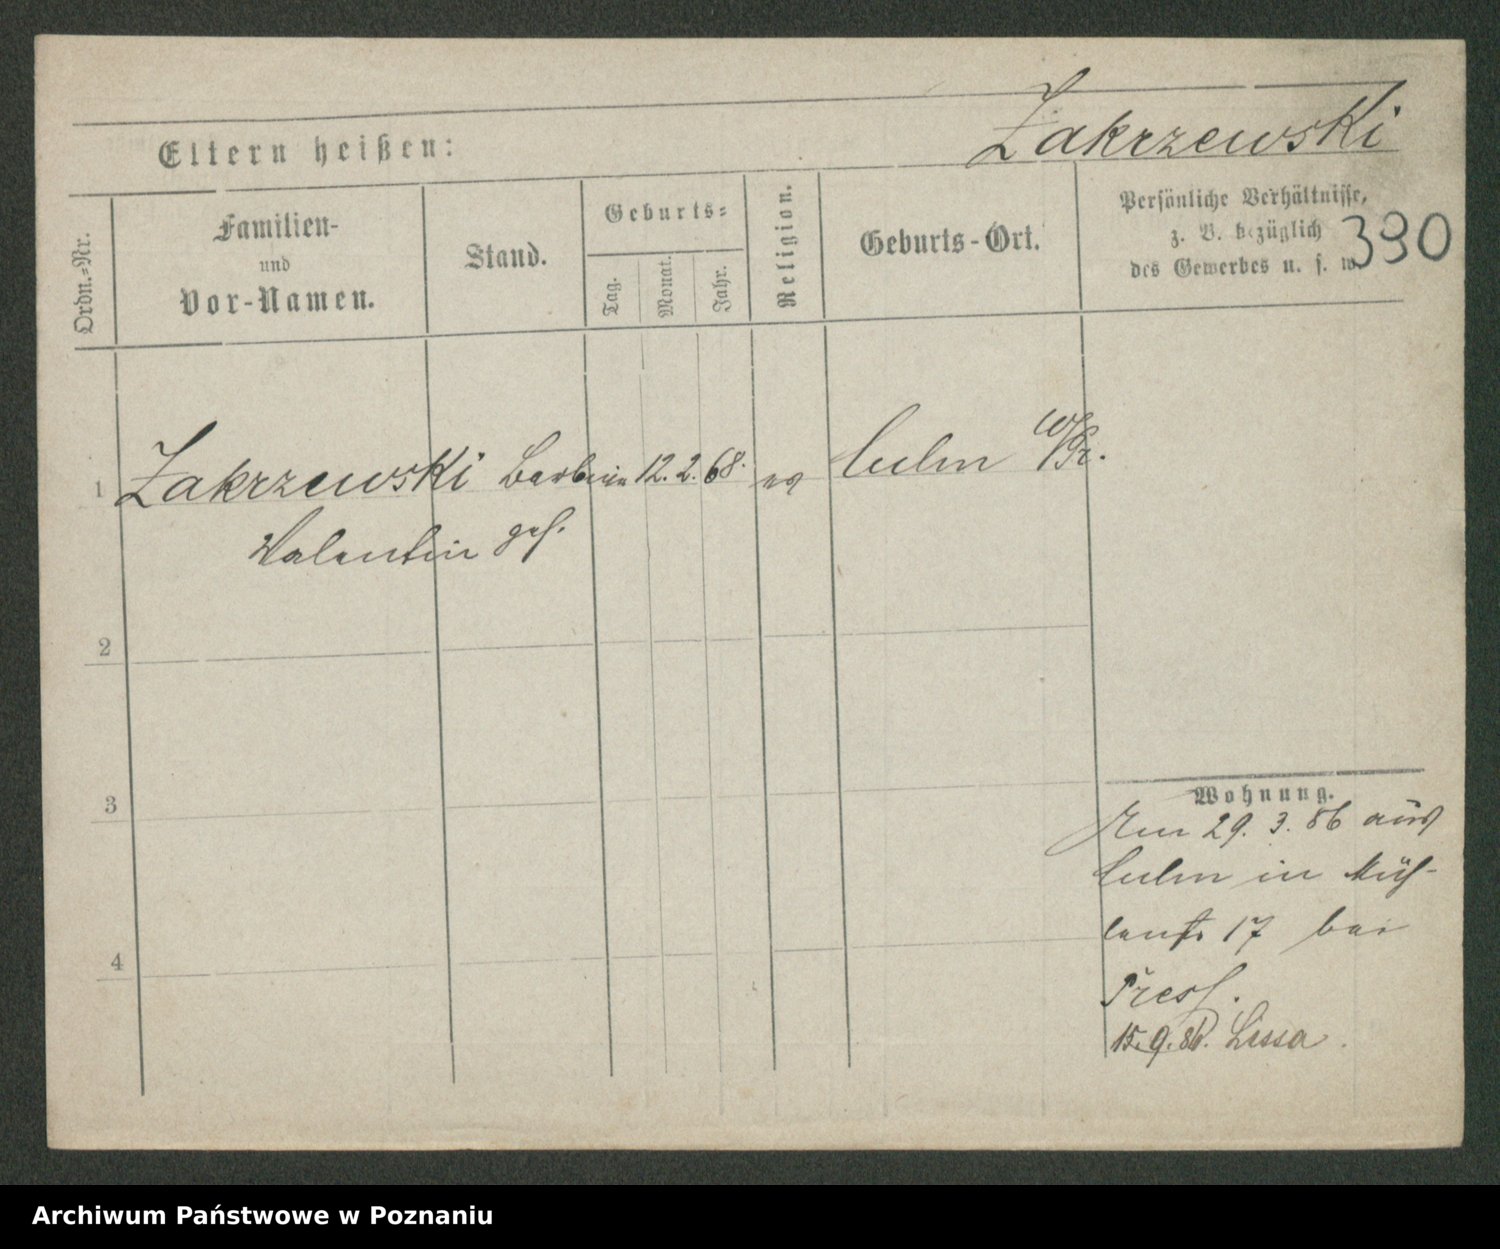 Zakrzewski
Eltern heißen:
390
Ordn.-Nr.
Familien-
und
Vor-Namen.
Stand.
Geburts-
Tag.
Monat.
Jahr.
Religion.
Geburts-Ort.
Persönliche Verhältnisse,
z. B. bezüglich
des Gewerbes u. s. w.
1 Zakrzewski 12. 2. 68. Culm W/Pr.
Valentin
2
3
4
Wohnung.
29. 3. 86 aus
Culm in Müh-
lenstr 17 bei
15. 9. 86. Lissa.
Archiwum Państwowe w Poznaniu